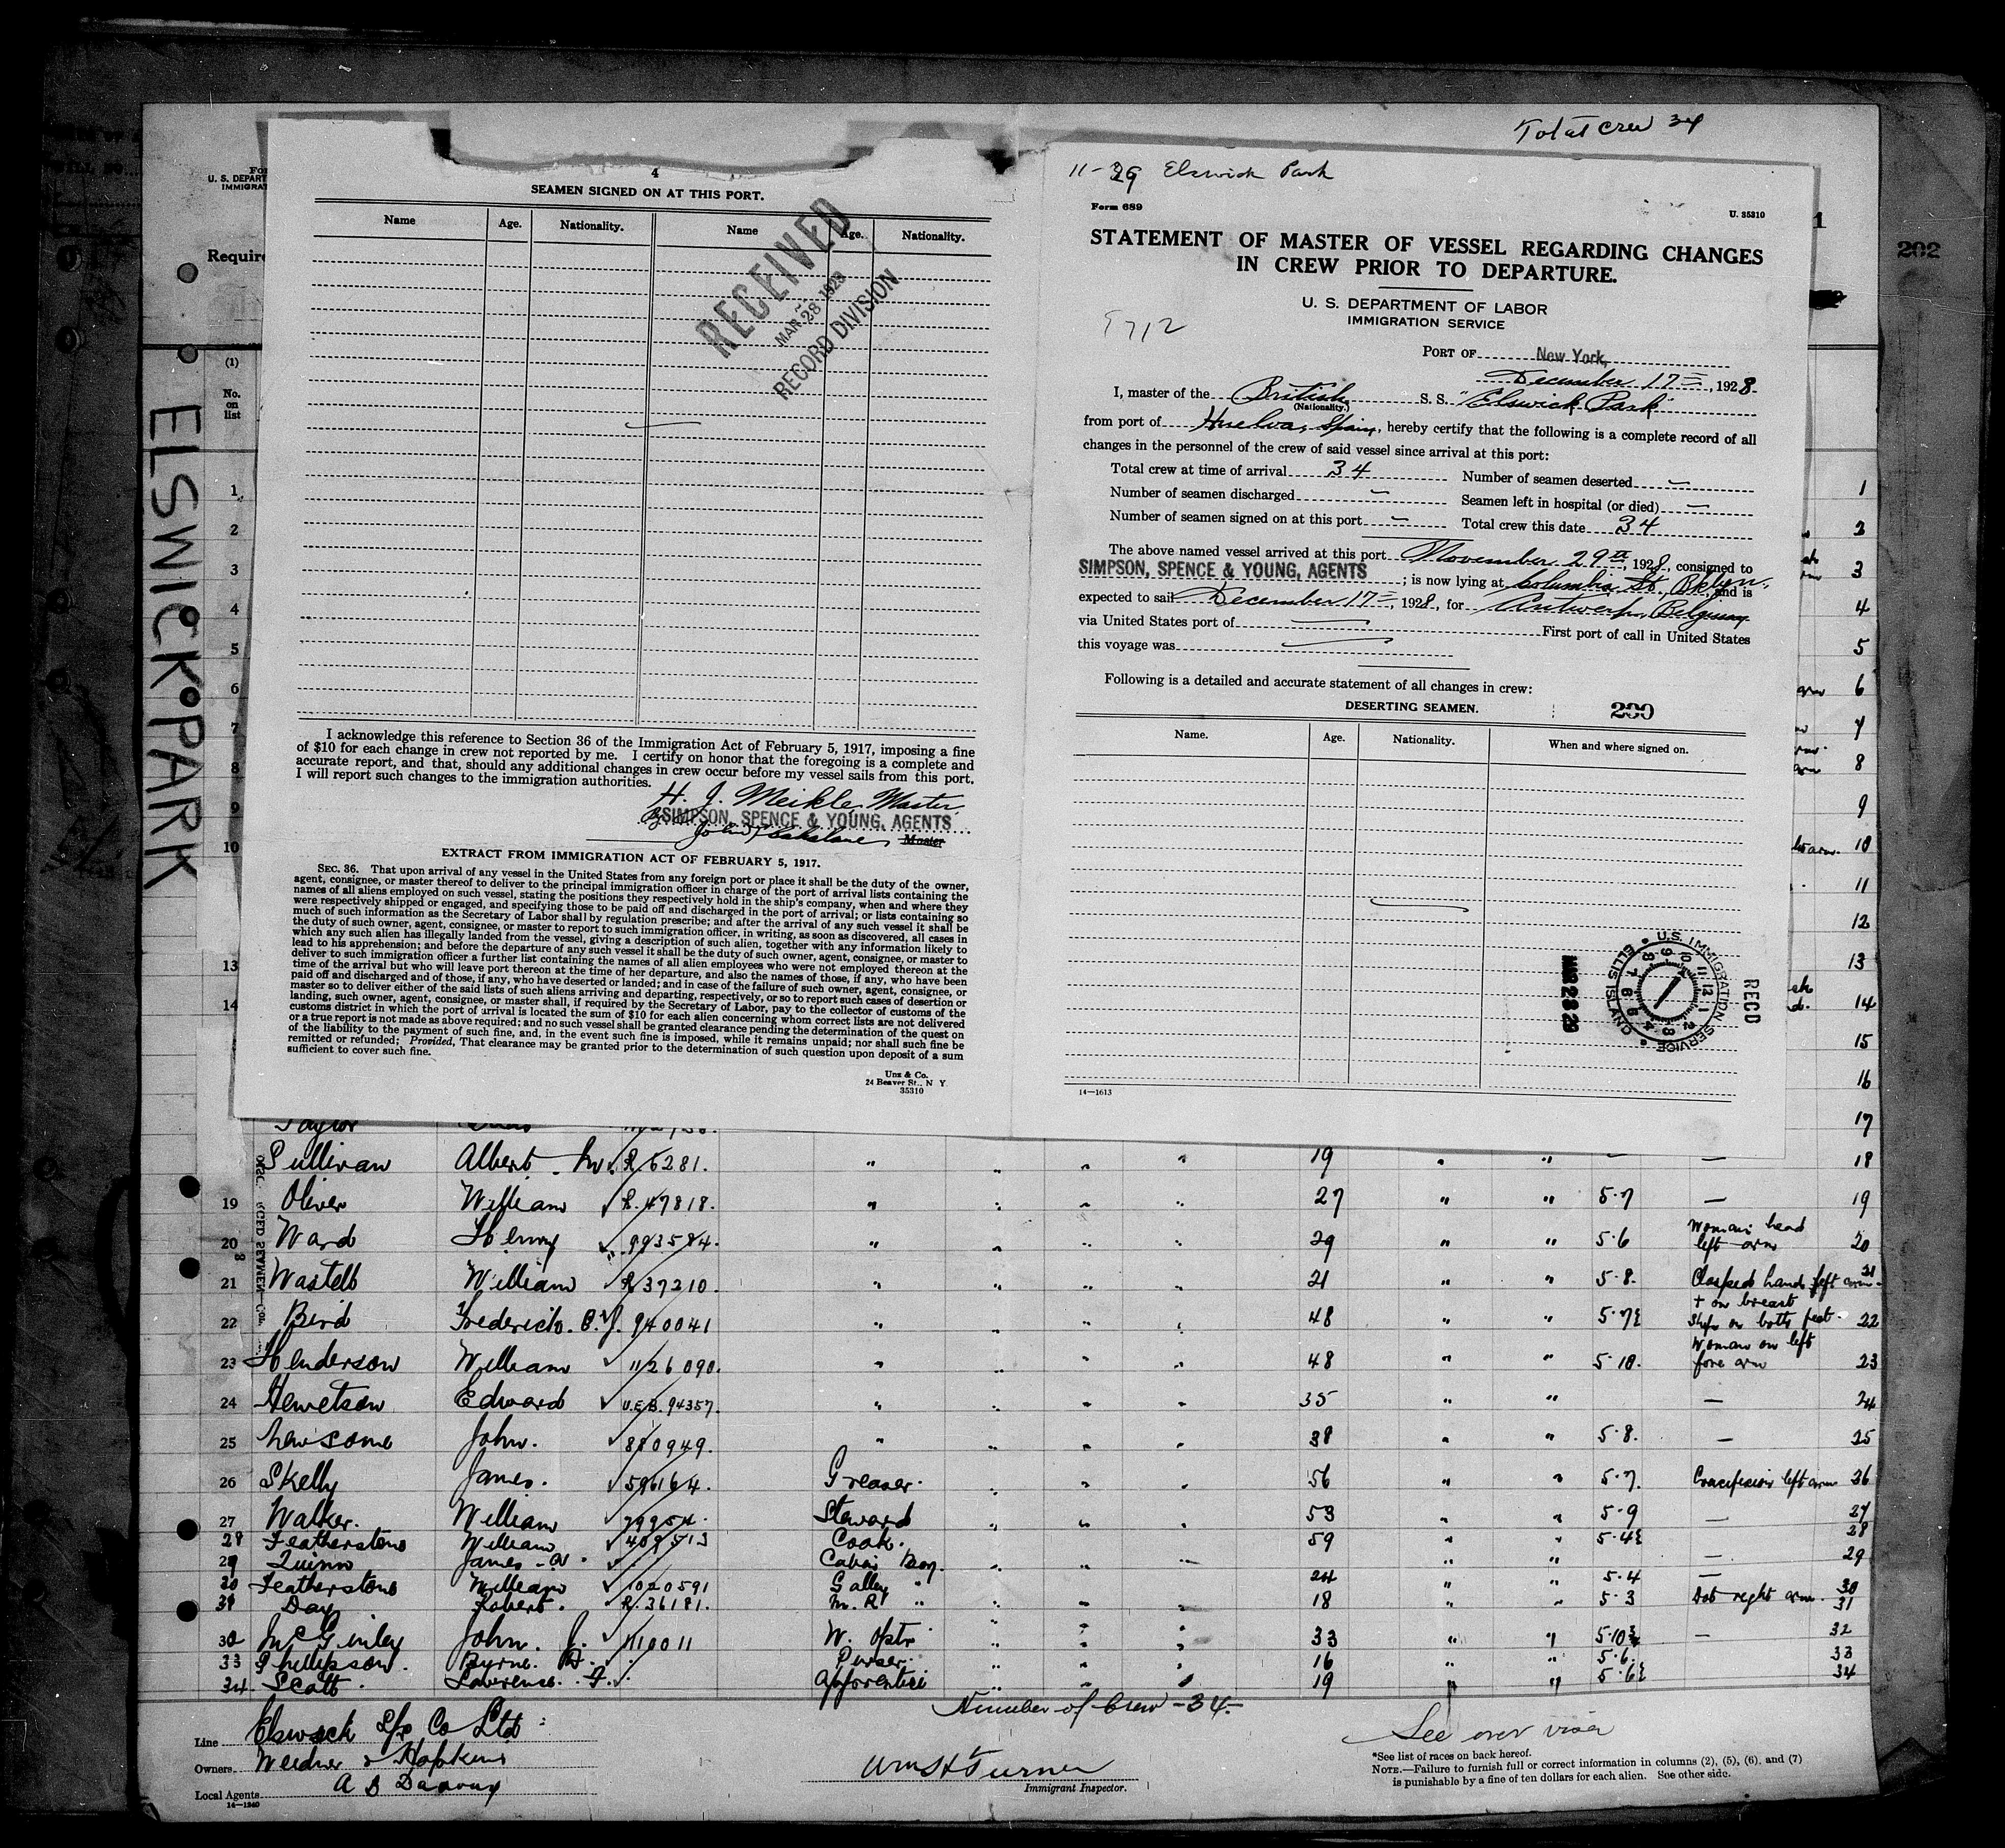 Total Crew 34
202
ELSWICK PARK
U. S. DEPART
IMMIGRAT
Require
(1)
No.
on
list
1
2
3
4
5
6
7
8
9
10
13
14
4
SEAMEN SIGNED ON AT THIS PORT.
Name Age. Nationality. Name Age. Nationality.
RECEIVED
MAR 28 1929
RECORD DIVISION
I acknowledge this reference to Section 36 of the Immigration Act of February 5, 1917, imposing a fine
of $10 for each change in crew not reported by me. I certify on honor that the foregoing is a complete and
accurate report, and that, should any additional changes in crew occur before my vessel sails from this port.
I will report such changes to the immigration authorities.
H. J. Meikle Master
SIMPSON, SPENCE & YOUNG, AGENTS
Master
EXTRACT FROM IMMIGRATION ACT OF FEBRUARY 5, 1917.
SEC. 36. That upon arrival of any vessel in the United States from any foreign port or place it shall be the duty of the owner,
agent, consignee, or master thereof to deliver to the principal immigration officer in charge of the port of arrival lists containing the
names of all aliens employed on such vessel, stating the positions they respectively hold in the ship's company, when and where they
were respectively shipped or engaged, and specifying those to be paid off and discharged in the port of arrival; or lists containing so
much of such information as the Secretary of Labor shall by regulation prescribe; and after the arrival of any such vessel it shall be
the duty of such owner, agent, consignee, or master to report to such immigration officer, in writing, as soon as discovered, all cases in
which any such alien has illegally landed from the vessel, giving a description of such alien, together with any information likely to
lead to his apprehension; and before the departure of any such vessel it shall be the duty of such owner, agent, consignee, or master to
deliver to such immigration officer a further list containing the names of all alien employees who were not employed thereon at the
time of the arrival but who will leave port thereon at the time of her departure, and also the names of those, if any, who have been
paid off and discharged and of those, if any, who have deserted or landed; and in case of the failure of such owner, agent, consignee, or
master so to deliver either of the said lists of such aliens arriving and departing, respectively, or so to report such cases of desertion or
landing, such owner, agent, consignee, or master shall, if required by the Secretary of Labor, pay to the collector of customs of the
customs district in which the port of arrival is located the sum of $10 for each alien concerning whom correct lists are not delivered
or a true report is not made as above required; and no such vessel shall be granted clearance pending the determination of the quest on
of the liability to the payment of such fine, and, in the event such fine is imposed, while it remains unpaid; nor shall such fine be
remitted or refunded; Provided, That clearance may be granted prior to the determination of such question upon deposit of a sum
sufficient to cover such fine.
Unz & Co.
24 Beaver St., N Y.
35310
11-29 Elswick Park
Form 689 U. 35310
STATEMENT OF MASTER OF VESSEL REGARDING CHANGES
IN CREW PRIOR TO DEPARTURE.
U. S. DEPARTMENT OF LABOR
IMMIGRATION SERVICE
PORT OF New York,
December 17, 1928
I, master of the British S. S. "Elswick Park"
(Nationality.)
from port of Huelva, Spain, hereby certify that the following is a complete record of all
changes in the personnel of the crew of said vessel since arrival at this port:
Total crew at time of arrival 34 Number of seamen deserted —
Number of seamen discharged — Seamen left in hospital (or died) —
Number of seamen signed on at this port — Total crew this date 34
The above named vessel arrived at this port November 29th, 1928, consigned to
SIMPSON, SPENCE & YOUNG, AGENTS; is now lying at Columbia St., Bklyn, and is
expected to sail December 17, 1928, for Antwerp, Belgium
via United States port of — First port of call in United States
this voyage was —
Following is a detailed and accurate statement of all changes in crew:
DESERTING SEAMEN. 200
Name. Age. Nationality. When and where signed on.
U.S. IMMIGRATION SERVICE ELLIS ISLAND
MAR 28 29
RECD
14—1613
1
2
3
4
5
6
7
8
9
10
11
12
13
14
15
16
Taylor 17
Sullivan Albert M. R 6281. " " " " 19 " " — — 18
19 Oliver William R. 47818. " " " " 27 " " 5.7 — 19
20 Ward Henry 993584. " " " " 29 " " 5.6 Woman's head left arm 20
21 Wastell William R 37210. " " " " 21 " " 5.8. Clasped hands left arm 21
22 Bird Frederick. 940041 " " " " 48 " " 5.7½ + on breast Ship on both feet 22
23 Henderson William 1126090. " " " " 48 " " 5.10. Woman on left fore arm 23
24 Hewetson Edward U.E.B. 94357. " " " " 35 " " — 24
25 Newsome John. 880949. " " " " 38 " " 5.8. — 25
26 Skelly James. 596164. Greaser. " " " 56 " " 5.7. Crucifixion left arm 26
27 Walker. William 79954. Steward " " " 53 " " 5.9 — 27
28 Featherstone William 409513 Cook. 59 " " 5.4½ 28
29 Quinn James Cabin Boy. " " 24 " " — 29
30 Featherstone William 1020591 Galley " 5.4 — 30
31 Day Robert. R. 36181. M. R " " " " 18 " " 5.3 Dot right arm. 31
32 McGinley John. J. 1110011 W. Optr " " " 33 " " 5.10¾ — 32
33 Phillipson. Byrne. Purser. " " " 16 " " 5.6. 33
34 Scott. Lawrence. F. Apprentice " " " 19 " " 5.6½ 34
Number of Crew - 34 -
Line Elswick S/s Co Ltd
Owners Weidner & Hopkins
Local Agents
14—1240
Wm H Turner
Immigrant Inspector.
See over
*See list of races on back hereof.
NOTE.—Failure to furnish full or correct information in columns (2), (5), (6), and (7)
is punishable by a fine of ten dollars for each alien. See other side.